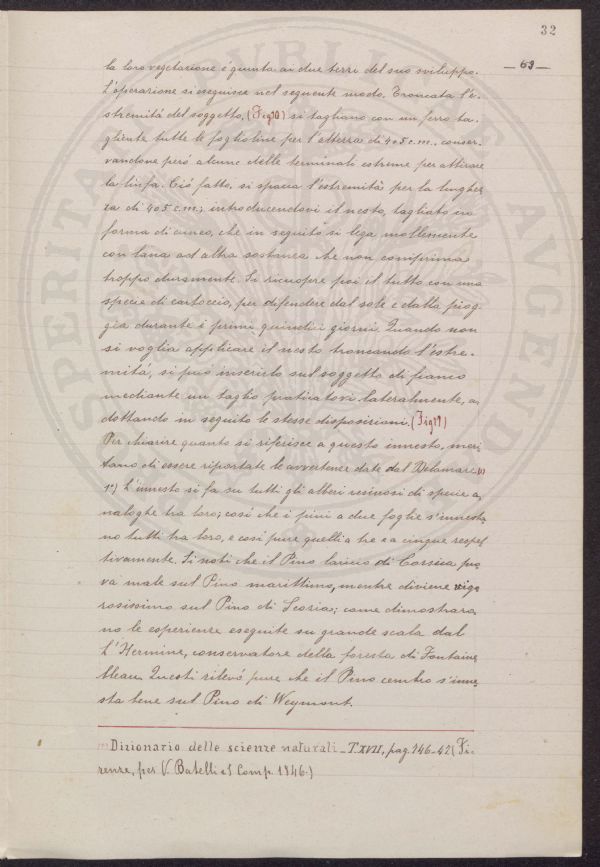 32
— 63 —
la loro vegetazione è giunta ai due terzi del suo sviluppo.
L'operazione si eseguisce nel seguente modo. Troncata l'e-
stremità del soggetto, (Fig 18) si tagliano con un ferro ta-
gliente tutte le foglioline per l'altezza di 4 o 5 c.m., conser-
vandone però alcune delle terminali estreme per attirare
la linfa. Ciò fatto, si spacca l'estremità per la lunghez
za di 4 o 5 c.m.; introducendovi il nesto, tagliato in
forma di cuneo, che in seguito si lega mollemente
con lana od altra sostanza che non comprima
troppo duramente. Si ricuopre poi il tutto con una
specie di cartoccio, per difendere dal sole e dalla piog-
gia durante i primi quindici giorni. Quando non
si voglia applicare il nesto troncando l'estre-
mità, si può inserirlo sul soggetto di fianco
mediante un taglio praticatovi lateralmente, a-
dottando in seguito le stesse disposizioni. (Fig 19)
Per chiarire quanto si riferisce a questo innesto, meri-
tano di essere riportate le avvertenze date dal Delamarc (1)
1°) L'innesto si fa su tutti gli alberi resinosi di specie a-
naloghe tra loro; così che i pini a due foglie s'innesta
no tutti tra loro, e così pure quelli a tre e a cinque respet
tivamente. Si noti che il Pino laricio di Corsica pro
va male sul Pino marittimo, mentre diviene vigo
rosissimo sul Pino di Scozia; come dimostraro
no le esperienze eseguite su grande scala dal
L'Hermine, conservatore della foresta di Fontaine
bleau. Questi rilevò pure che il Pino cembro s'inne
sta bene sul Pino di Weymont.
(1) Dizionario delle scienze naturali _ T. XVII, pag. 146-42 (Fi-
renze, per V. Batelli e Comp. 1846.)
SPERITA PUBLI AUGEND